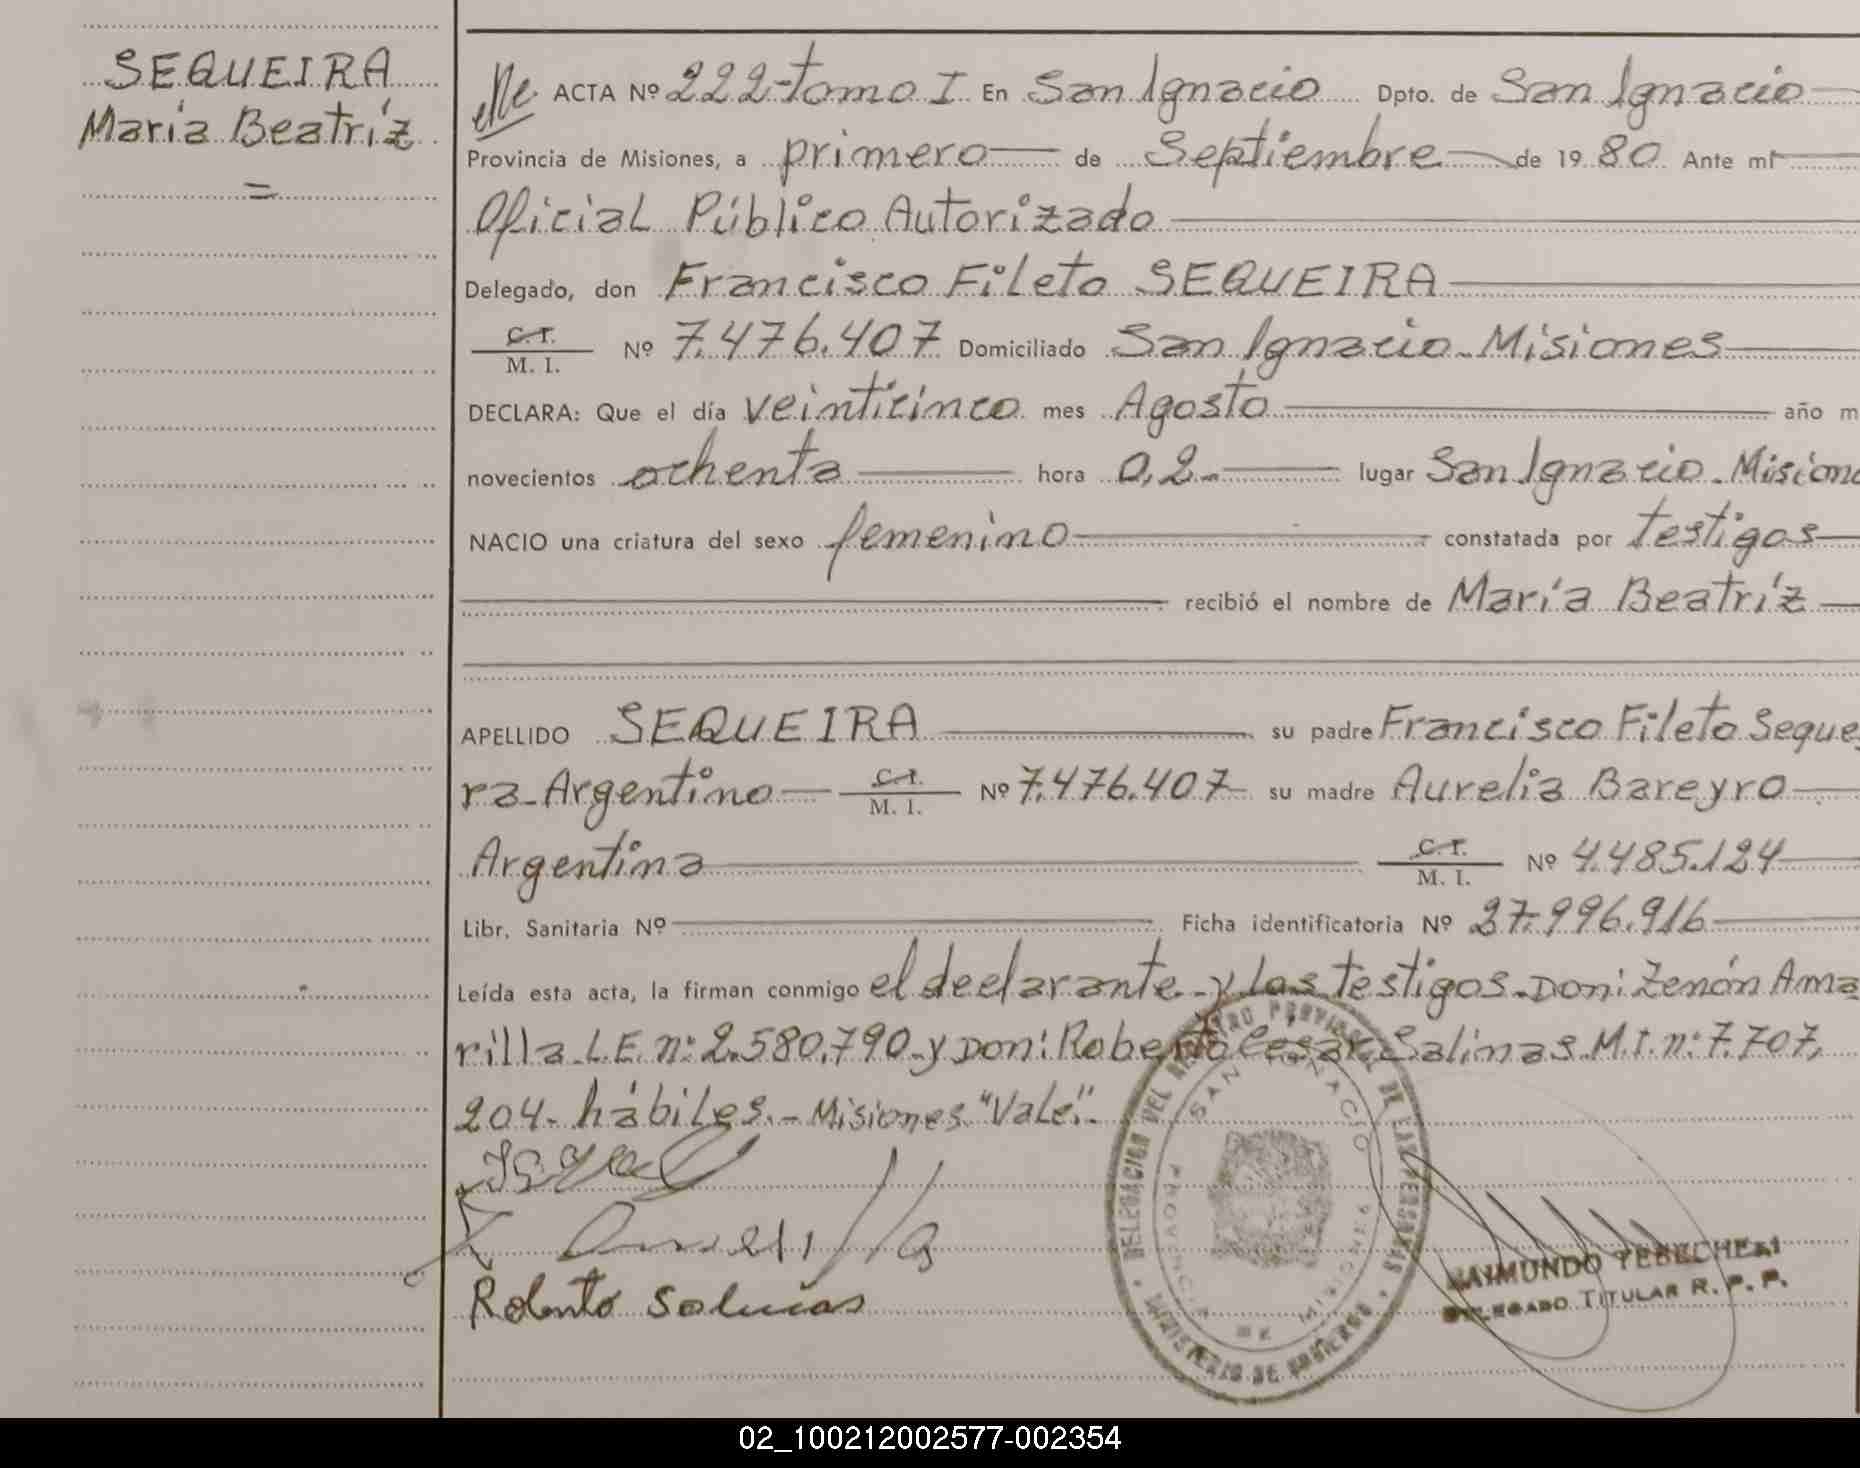 SEQUEIRA
María Beatríz
=
ACTA Nº 222-tomo I En San Ignacio Dpto. de San Ignacio
Provincia de Misiones, a primero de Septiembre de 1980 Ante mí
Oficial Público Autorizado
Delegado, don Francisco Fileto SEQUEIRA
C. I.
M. I. Nº 7.476.407 Domiciliado San Ignacio-Misiones
DECLARA: Que el día veinticinco mes Agosto año m
novecientos ochenta hora 0,2.- lugar San Ignacio-Misione
NACIO una criatura del sexo femenino constatada por testigos
recibió el nombre de María Beatríz
APELLIDO SEQUEIRA su padre Francisco Fileto Sequei
ra-Argentino C. I.
M. I. Nº 7.476.407 su madre Aurelia Bareyro
Argentina C. I.
M. I. Nº 4.485.124
Libr. Sanitaria Nº Ficha identificatoria Nº 27.996.916
Leída esta acta, la firman conmigo el declarante y los testigos-Don: Zenón Ama
rilla-L.E.n: 2.580.790-y Don: Roberto Cesar Salinas-M.I.n: 7.707,
204- hábiles.- Misiones "Vale".-
Roberto Salinas
DELEGACION DEL REGISTRO PROVINCIAL DE LAS PERSONAS
SAN IGNACIO
PROVINCIA DE MISIONES
MINISTERIO DE GOBIERNO
RAIMUNDO
DELEGADO TITULAR R. P. P.
02_100212002577-002354